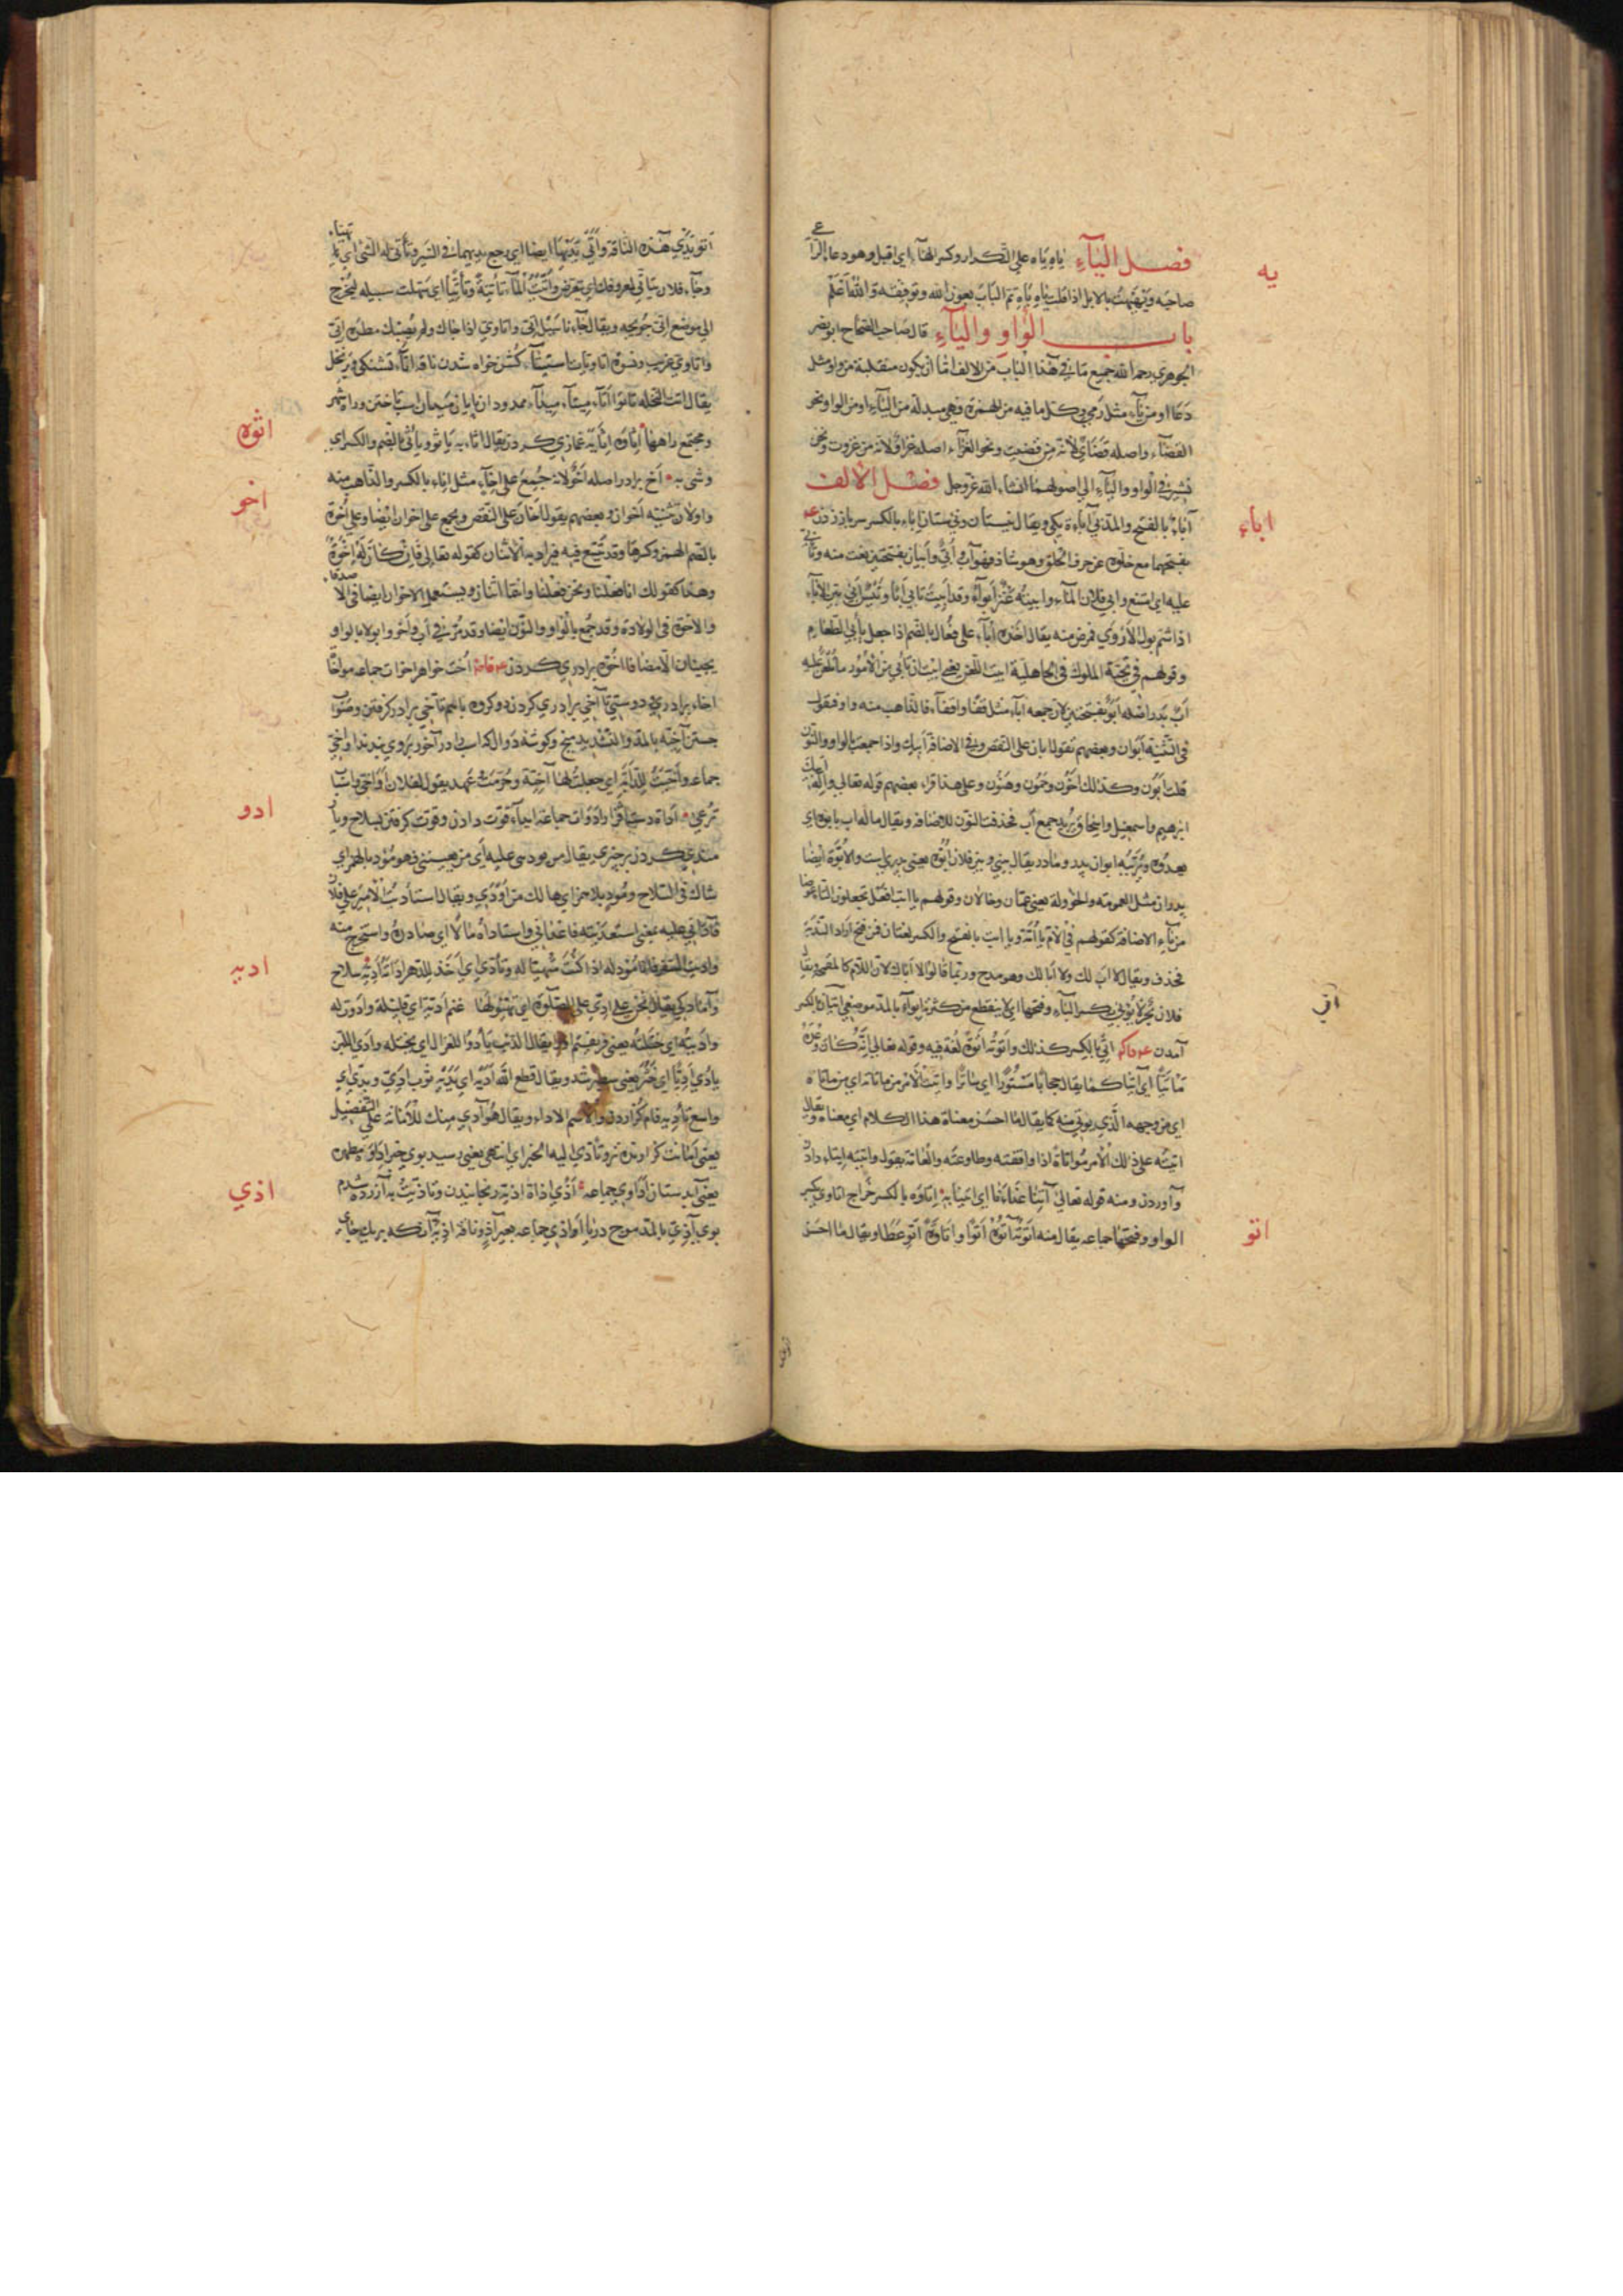 فصل الياء ياه ياه على التكرار وكسر الهاء اي اقبل وهو دعاء الراعي
يه
صاحبه ويهيهت بالابل اذا قلت ياه ياه تم الباب بعون الله وتوفيقه والله اعلم
باب الواو والياء قال صاحب الصحاح ابو نصر
الجوهري رحمه الله جميع ما في هذا الباب من الالف اما ان يكون منقلبة من واو مثل
دعا او من ياء مثل رمي وكل ما فيه من الهمزة فهي مبدلة من الياء او من الواو ونحو
القضاء واصله قضاي لانه من قضيت ونحو الغراء اصله غراو لانه من غروت ونحن
نشير في الواو والياء الي اصولهما انشاء الله عز وجل فصل الالف
اباء
اباء بالفتح والمد ني اباءة يكي ويقال نيستان وني ستان اباء بالكسر سر باز زدن
بفتحهما مع خلوه عن حرف الحلق وهو شاذ فهو آب وابي وابيان بفتحتين نعت منه وتابي
عليه اي امتنع وابي فلان الماء وابيته عنز ابواء وقد ابيت تابي ابا وتيس ابي بين الاباء
اذا شم بول الاروي فمرض منه يقال اخذه اباء على فعال بالضم اذا جعل يابي الطعام
وقولهم في تحية الملوك في الجاهلية ابيت اللعن يعني ابيت ان تاتي من الامور ما تلعن عليه
اب پدر اصله ابو بفتحتين لان جمعه اباء مثل قفا واقفاء فالذاهب منه واو فتقول
في التثنية ابوان وبعضهم يقول ابان على النقص وفي الاضافة ابيك واذا جمعت بالواو والنون
قلت ابون وكذلك اخون وحمون وهنون وعلى هذا قراء بعضهم قوله تعالي واله ابيك
ابرهيم واسمعيل واسحاق يريد جمع اب فحذفت النون للاضافة ويقال ماله اب يابوه اي
يغذوه ويربيه ابوان پدر ومادر يقال بيني وبين فلان ابوة يعني پدري است والابوة ايضا
پدران مثل العمومة والخؤولة يعني عمان وخالان وقولهم يا ابت افعل تجعلون التاء عوضا
من ياء الاضافة كقولهم في الام يا امة ويا ابت بالفتح والكسر لغتان فمن فتح اراد الندبة
فحذف ويقال لا اب لك ولا ابا لك وهو مدح وربما قالوا لا اباك لان اللام كالمقحمة ويقال
اتي
فلان بحر لا يؤبي بكسر الباء وفتحها اي لا ينقطع من كثرته ابواء بالمد موضعي اتيان بالكسر
آمدن اتي بالكسر كذلك واتوته اتوة لغة فيه وقوله تعالي انه كان وعده
ماتيا اي آتيا كما يقال حجابا مستورا اي ساترا واتيت الامر من ماتاته اي من ماتاه
اي من وجهه الذي يوتي منه كما يقال ما احسن معناة هذا الكلام اي معناه ويقال
اتيته على ذلك الامر مواتاة اذا وافقته وطاوعته والعامة يقول واتيته ايتاء دادن
وآوردن ومنه قوله تعالي آتنا غداءنا اي ايتنا به اتاوه بالكسر خراج اتاوي بكسر
اتو
الواو وفتحها جماعه يقال منه اتوته آتوه اتوا واتاوة اتو عطا ويقال ما احسن
اتو يدي هذه الناقة واتي يديها ايضا اي رجع يديها في السير وتاتي له الشي اي تهيا
وجاء فلان يتاتي لمعروفك اي يتعرض واتيت للماء تاتية وتاتيا اي سهلت سبيله ليخرج
الي موضع اتي جويچه ويقال جاءنا سيل اتي واتاوي اذا جاءك ولم يصبك مطره اتي
واتاوي غريب ونسوة اتاويات استيتاء كشن خواه شدن ناقه
يقال اتت النخلة تاتو اتاء ميتاء ميداء ممدودان پايان ميدان اسب تاختن وراه شهر
اثوه
ومجتمع راهها اثاوه اثايه غمازي كردن يقال اثاء به ياثو وياثي بالضم والكسر اي
اخو
وشي به اخ برادر اصله اخو لانه جمع على اخاء مثل اباء بالكسر والذاهب منه
واو لان تثنيته اخوان وبعضهم يقول اخان على النقص ويجمع على اخوان ايضا وعلى اخوة
بالضم الهمزه وكسرها وقد يتسع فيه فيراد به الاثنان كقوله تعالي فان كان له اخوة
وهذا كقولك انا فعلنا ونحن فعلنا وانتما اثنان ويستعمل الاخوان ايضا في الاصدقاء
والاخوة في الولادة وقد جمع بالواو والنون ايضا وقد مر في اب واخو وابو لا بالواو
يجيئان الا مضافا اخوة برادري كردن اخت خواهر اخوات جماعه مواخاة
اخاء برادري ودوستي تآخي برادري كردن دو كروه باهم تاخي برادر كرفتن وصواب
جستن آخيه بالمد والتشديد ميخ وكوشه دوال كه اسب در آخور بروي بندند اواخي
جماعه واخيت للدابة اي جعلت لها آخية وحرمت وعهد يقول لفلان اواخي واسباب
ادو
ترعي اداة دست افزار ادوات جماعة ايداء قوت دادن وقوت كرفتن بسلاح وياري
مندي كردن بر چيزي يقال من يودني عليه اي من يعينني فهو مؤد بالهمز اي
شاك في السلاح ومود بلا همز اي هالك من اودي ويقال استاديت الامير على فلان
فآداني عليه بمعني استعديته فاعداني واستاداه مالا اي صادره واستخرج منه
ادي
واديت للسفر فانا مؤد له اذا كنت متهيئا له وتاديت اي اخذ للدهر اداته سلاح
وآمادكي يقال نحن على ادي على الصلوة اي تهيؤ لها غنم ادية اي قليلة وادوت له
واديته اي ختلته يعني فريفتم اورا يقال الذئب يادو للغزال اي يختله وادي اللبن
يادي اديا اي خثر يعني سطبر شد ويقال قطع الله اديه اي يديه ثوب ادي ويدي اي
واسع تاديه وام كزاردن والاسم الاداء ويقال هو آدي منك للامانة على التفضيل
يعني امانت كزارنده تر وتادي اليه الخبر اي انتهي يعني رسيد بوي خبر اداوه مطهره
اذي
يعني آبدستان اداوي جماعه اذي اذاة اذية رنجانيدن وتاذيت به آزرده شدم
بوي آذي بالمد موج دريا اواذي جماعه بعير آذ وناقة اذية آنكه بر يك جاي